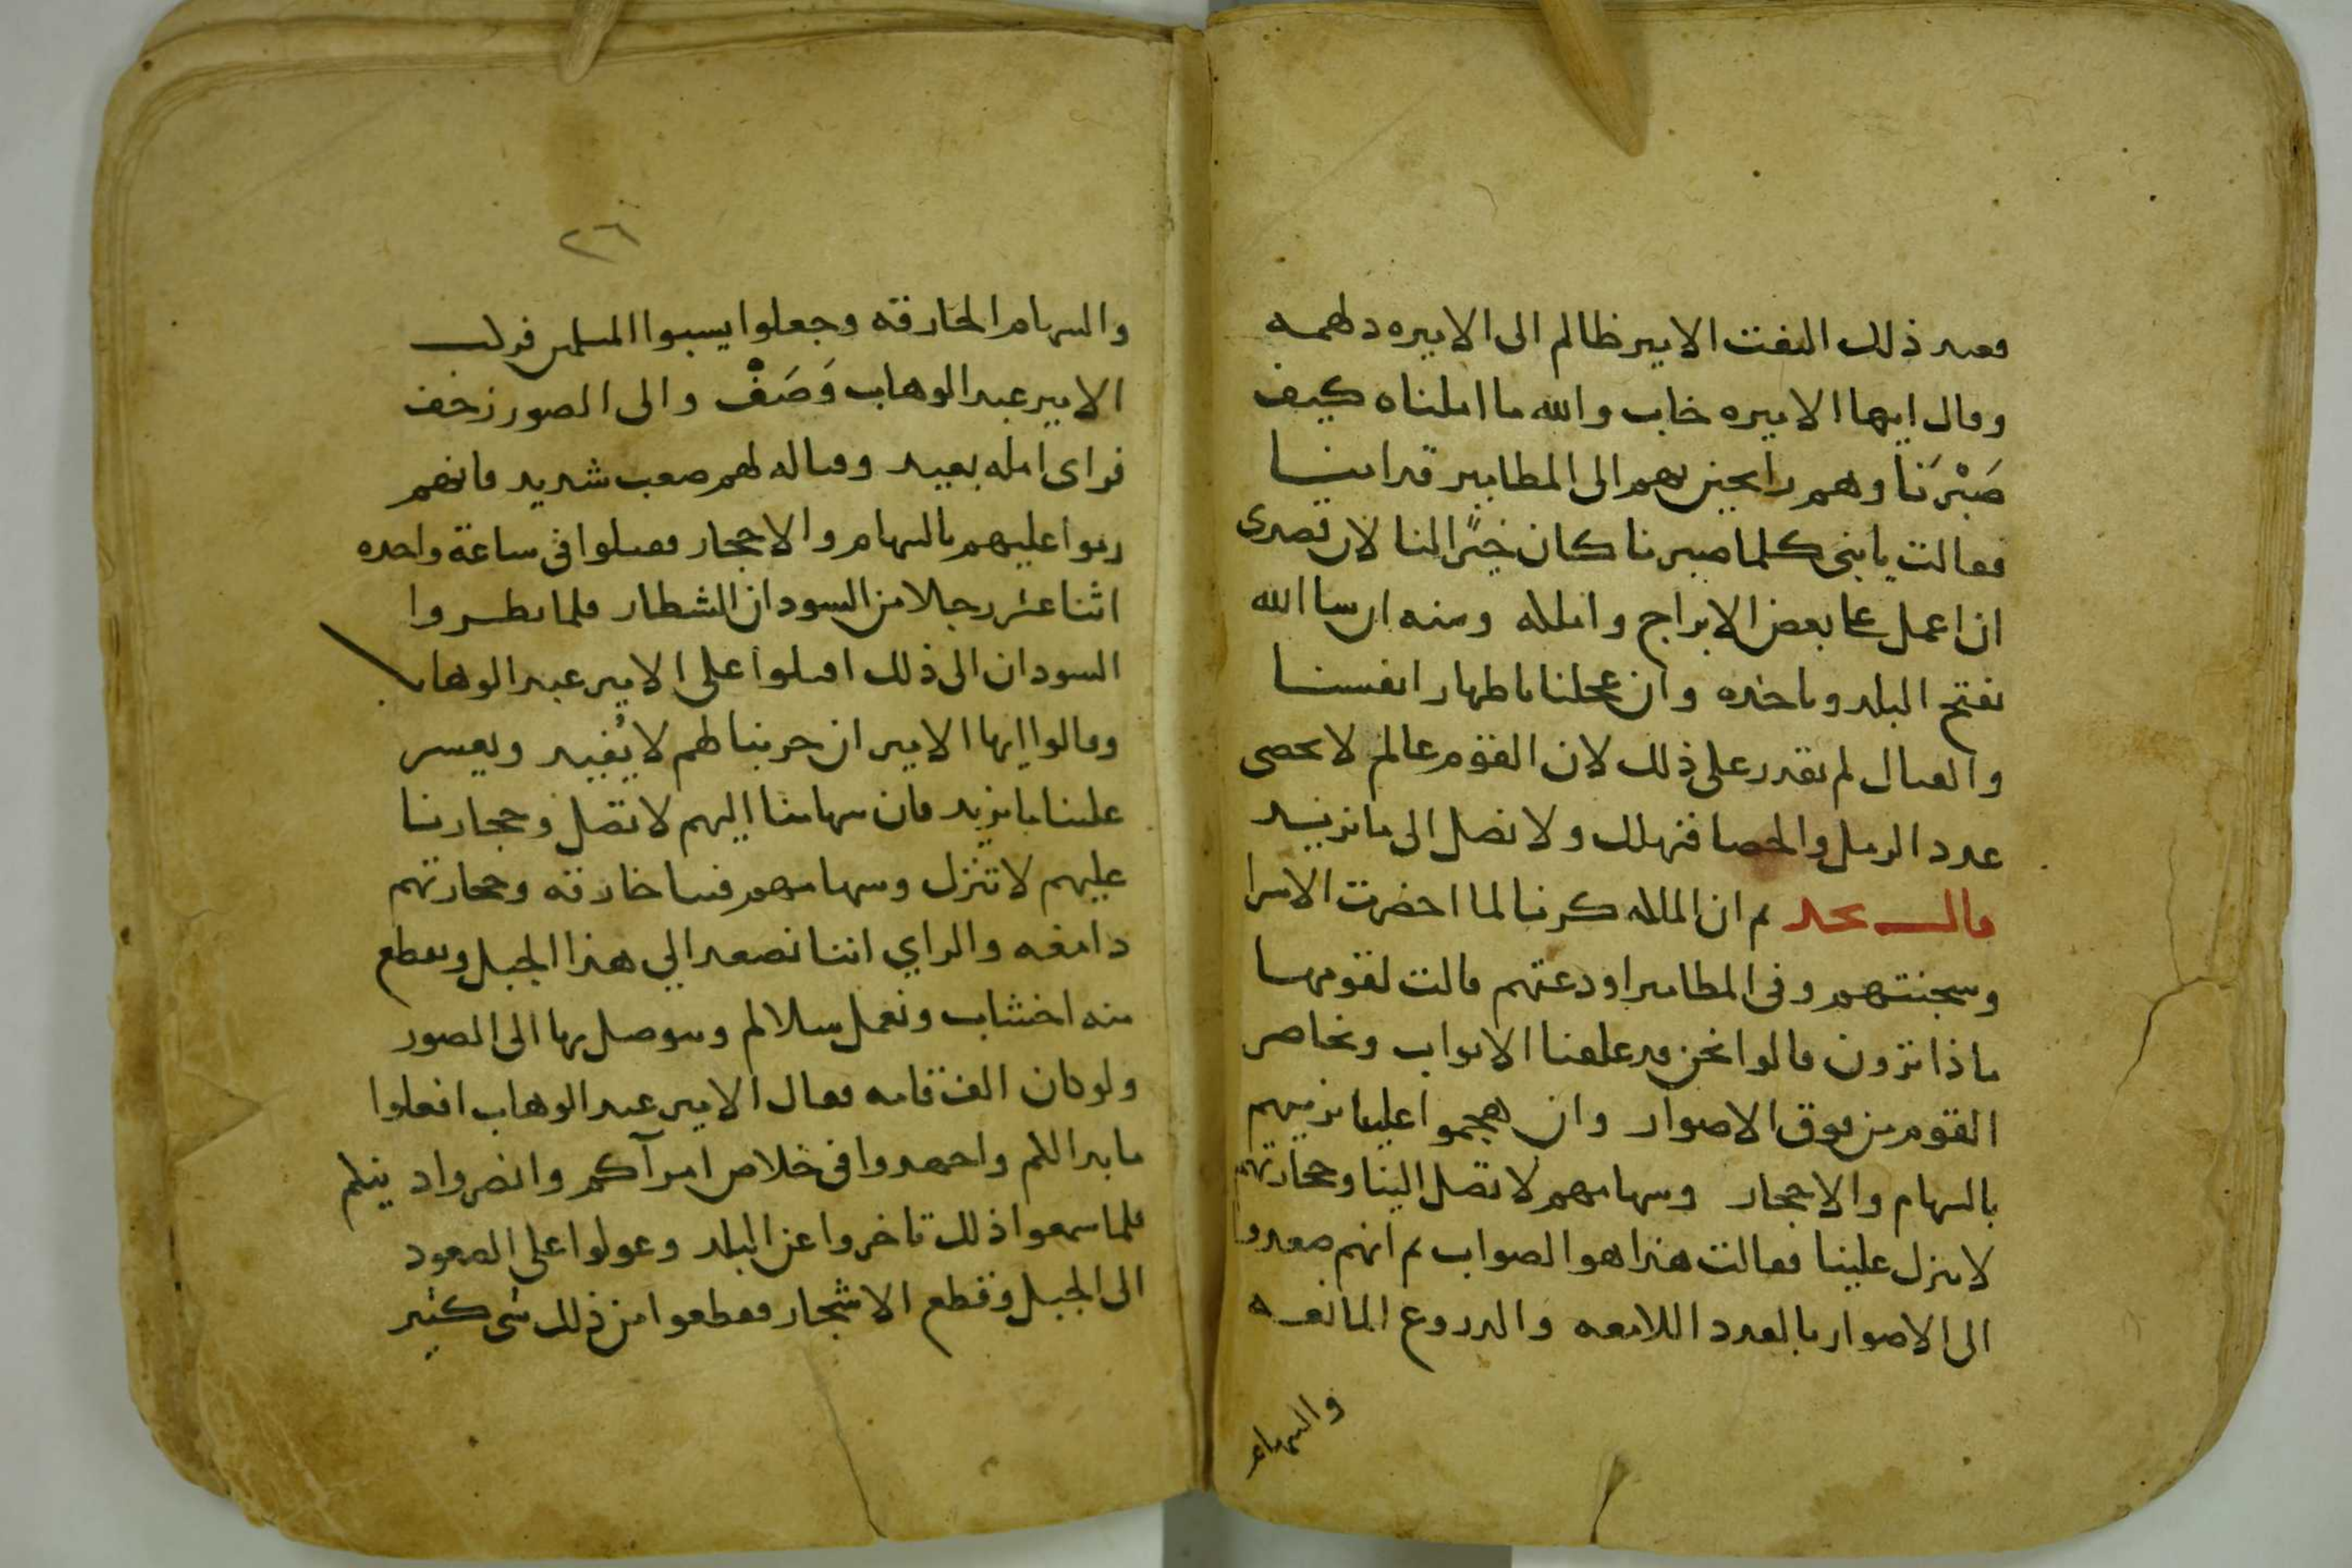 فعند ذلك التفت الامير ظالم الى الاميره دلهمه
وقال ايها الاميره خاب والله ما املناه كيف
صَبْرَنَا وهم رايحين بهم الى المطامير قدامنا
فقالت يا بنى كلما صبرنا كان خيرًا لنا لان قصدى
ان اعمل على بعض الابراج واملكه ومنه ان شا الله
نفتح البلد وناخذه وان عجلنا باظهار انفسنا
والقتال لم نقدر على ذلك لان القوم عالم لا تحصى
عدد الرمل والحصا فنهلك ولا نصل الى ما نريد
قال نجد ثم ان الملكه كرنا لما احضرت الامرا
وسجنتهم وفى المطامير اودعتهم قالت لقومها
ما ذا ترون قالوا نحن قد غلقنا الابواب ونحاصر
القوم من فوق الاصوار وان هجموا علينا نرميهم
بالسهام والاحجار وسهامهم لا تصل الينا وحجارتهم
لا تنزل علينا فقالت هذا هو الصواب ثم انهم صعدوا
الى الاصوار بالعدد اللامعه والدروع المانعه
والسهام
٢٦
والسهام الخارقه وجعلوا يسبوا المسلمين فركب
الامير عبد الوهاب وَصَفْ والى الصور زحف
فراى امله بعيد وقتاله لهم صعب شديد فانهم
رموا عليهم بالسهام والاحجار فقتلوا فى ساعة واحده
اثنا عشر رجلا من السودان الشطار فلما نظروا
السودان الى ذلك اقبلوا على الامير عبد الوهاب
وقالوا ايها الامير ان حربنا لهم لا يُفيد ويعسر
علينا ما نريد فان سهامنا اليهم لا تصل وحجارتنا
عليهم لا تنزل وسهامهم فينا خارقه وحجارتهم
دامغه والراي اننا نصعد الي هذا الجبل ونقطع
منه اخشاب ونعمل سلالم ونتوصل بها الى الصور
ولو كان الف قامه فقال الامير عبد الوهاب افعلوا
ما بدا لكم واجهدوا فى خلاص امرآكم وانصروا دينكم
فلما سمعوا ذلك تاخروا عن البلد وعولوا على الصعود
الى الجبل وقطع الاشجار فقطعوا من ذلك شى كثير